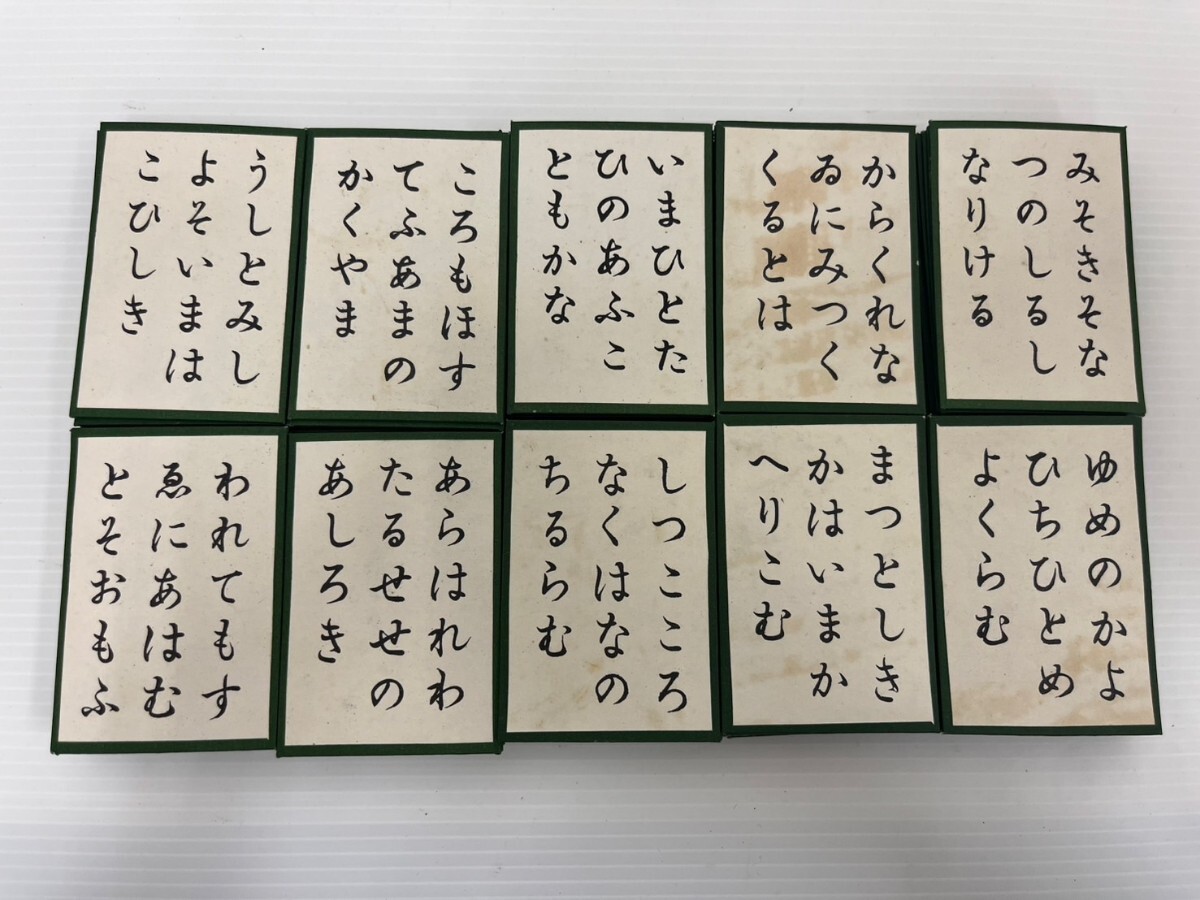 みそきそな
つのしるし
なりける
からくれな
ゐにみつく
くるとは
いまひとた
ひのあふこ
ともかな
ころもほす
てふあまの
かくやま
うしとみし
よそいまは
こひしき
ゆめのかよ
ひちひとめ
よくらむ
まつとしき
かはいまか
へりこむ
しつこころ
なくはなの
ちるらむ
あらはれわ
たるせせの
あしろき
われてもす
ゑにあはむ
とそおもふ